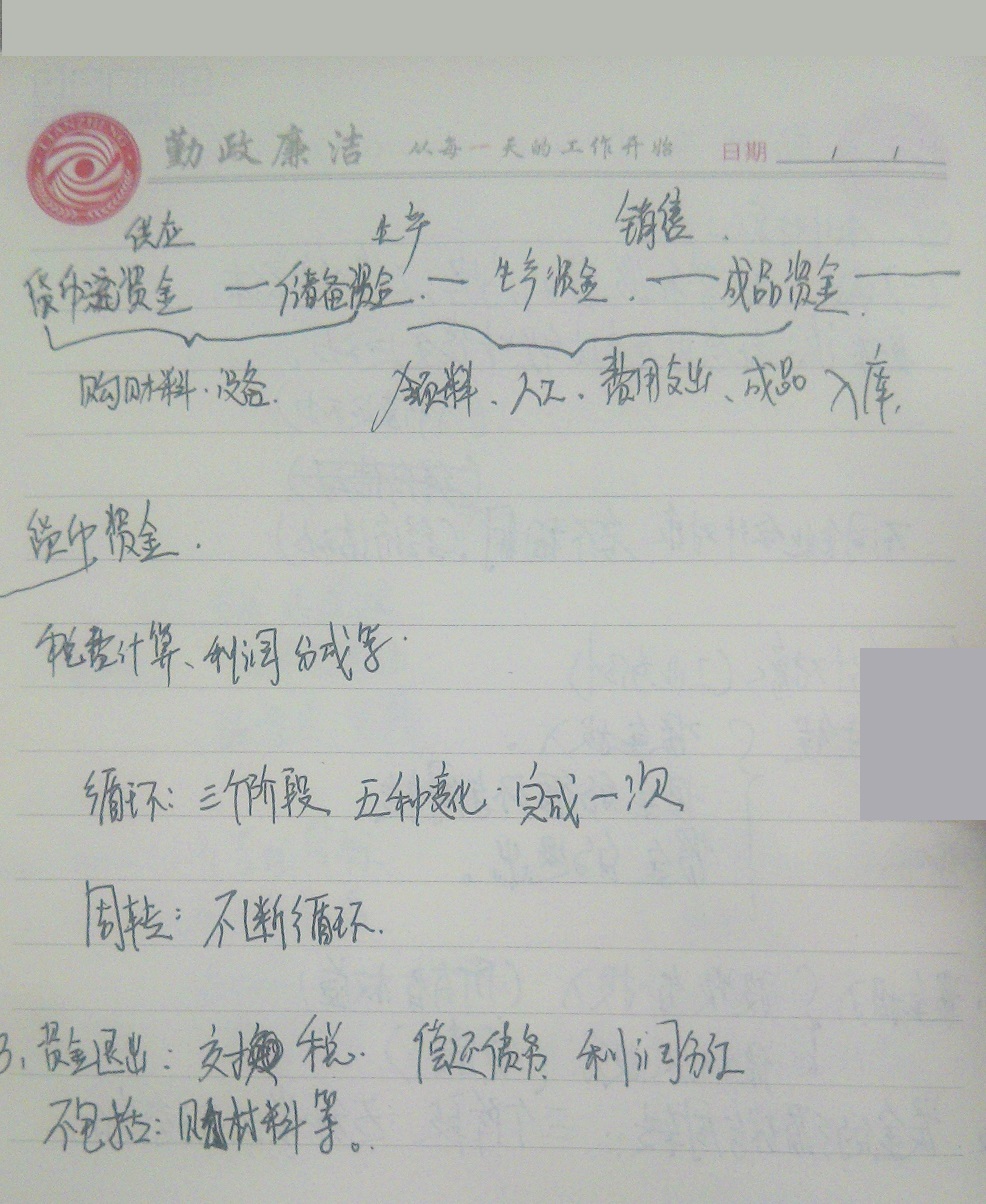 LIANZHENG
勤政廉洁 从每一天的工作开始 日期 / /
供应 生产 销售.
货币资金 — 储备资金. — 生产资金. — 成品资金 —
购财料.设备. 领料、人工、费用支出、成品入库.
货币资金.
税费计算、利润分成等.
循环:三个阶段 五种变化.完成一次
周转:不断循环.
3、资金退出:交税. 偿还债务 利润分红
不包括:购材料等。